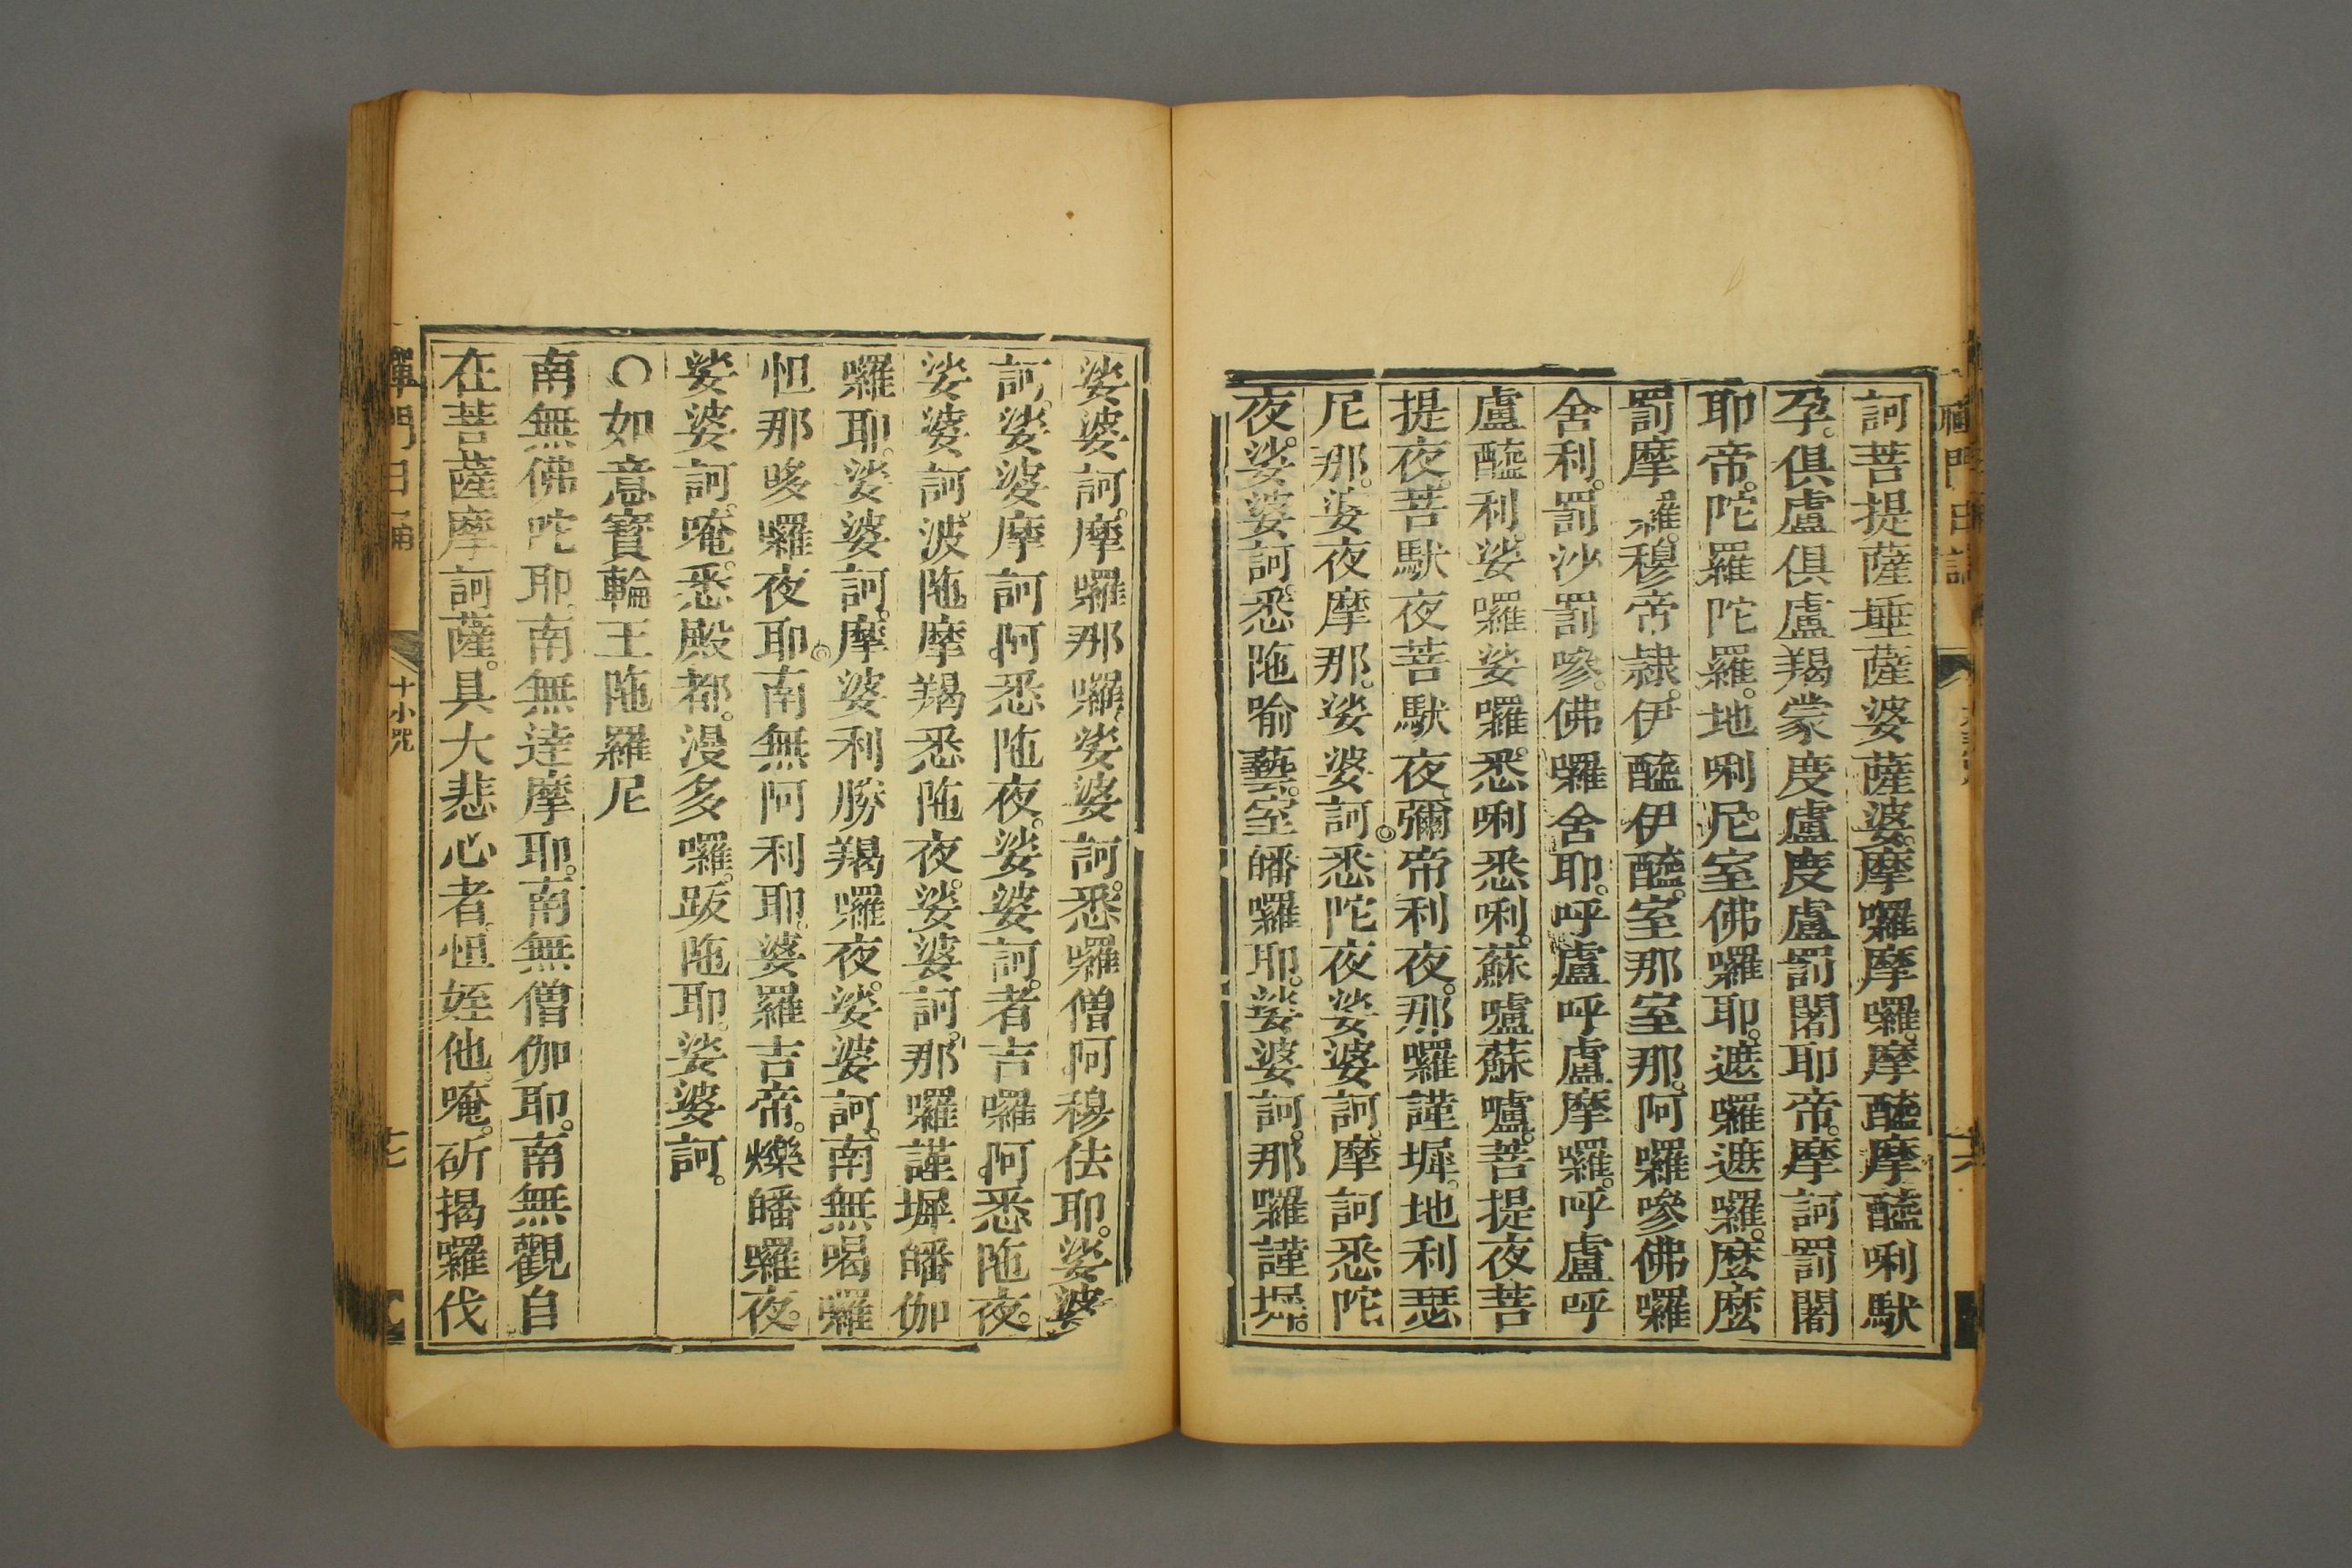 訶菩提薩埵薩婆薩婆。摩囉摩囉。摩醯摩醯唎馱
孕。俱盧俱盧羯蒙度盧度盧罰闍耶帝。摩訶罰闍
耶帝。陀羅陀羅。地唎尼。室佛囉耶。遮囉遮囉。麼麼
罰摩囉。穆帝隸。伊醯伊醯。室那室那。阿囉嘇佛囉
舍利。罰沙罰嘇。佛囉舍耶。呼盧呼盧摩囉。呼盧呼
盧醯利。娑囉娑囉。悉唎悉唎。蘇嚧蘇嚧。菩提夜菩
提夜。菩馱夜菩馱夜。彌帝利夜。那囉謹墀。地利瑟
尼那。娑夜摩那。娑婆訶。悉陀夜娑婆訶。摩訶悉陀
夜。娑婆訶。悉陁喻藝。室皤囉耶。娑婆訶。那囉謹墀。
娑婆訶。摩囉那囉。娑婆訶。悉囉僧阿穆佉耶。娑婆
訶。娑婆摩訶阿悉陁夜。娑婆訶。者吉囉阿悉陁夜。
娑婆訶。波陁摩羯悉陁夜。娑婆訶。那囉謹墀皤伽
囉耶。娑婆訶。摩婆利勝羯囉夜。娑婆訶。南無喝囉
怛那哆囉夜耶。南無阿利耶。婆羅吉帝。爍皤囉夜。
娑婆訶。唵。悉殿都。漫多囉。跋陁耶。娑婆訶。
〇如意寶輪王陁羅尼
南無佛陀耶。南無達摩耶。南無僧伽耶。南無觀自
在菩薩摩訶薩。具大悲心者。怛姪他。唵。斫揭囉伐
禪門日誦
十小咒